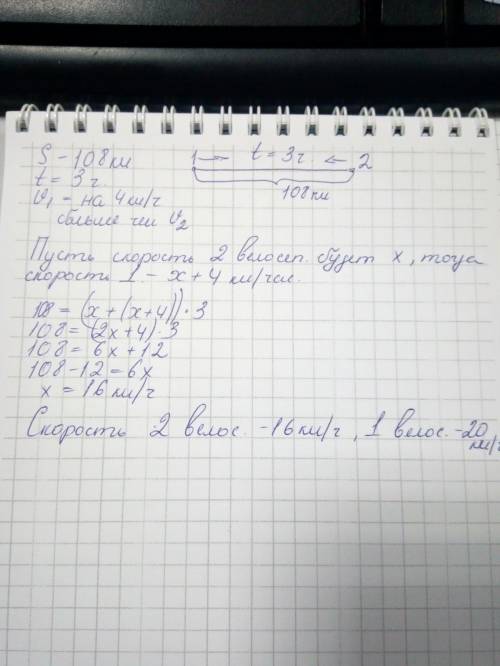 S - 108 км
t = 3 ч.
1 → t = 3 ч. ← 2
108 км
V₁ - на 4 км/ч
больше чем V₂
Пусть скорость 2 велосип. будет x, тогда
скорость 1 - x + 4 км/час.
108 = (x + (x+4)) · 3
108 = (2x+4) · 3
108 = 6x + 12
108 - 12 = 6x
x = 16 км/ч
Скорость 2 велос. - 16 км/ч, 1 велос. - 20
км/ч